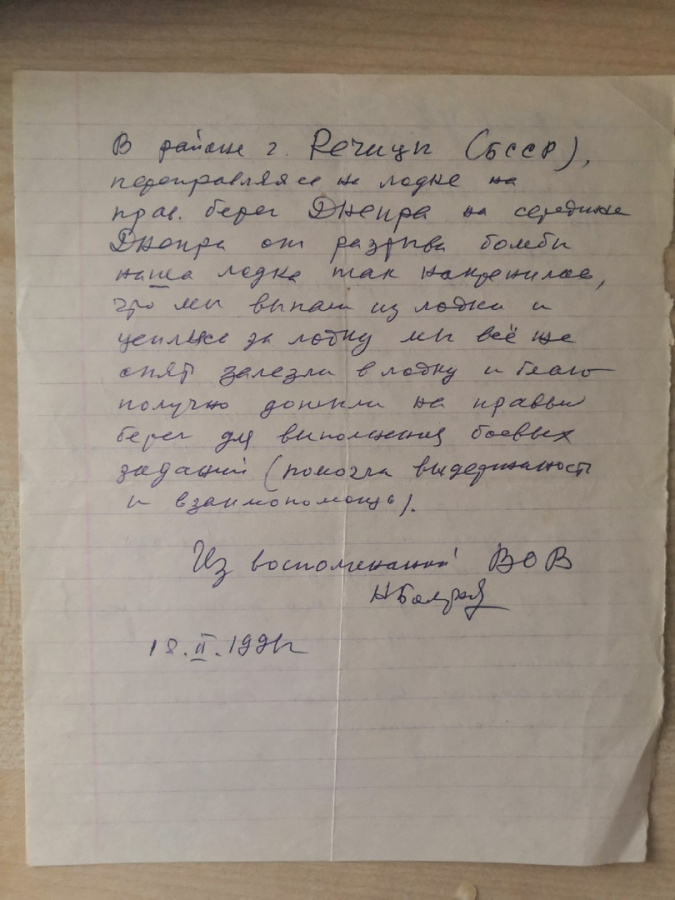 В районе г. Речицы (БССР),
переправляясь на лодке на
прав. берег Днепра на середине
Днепра от разрыва бомбы
наша лодка так накренилась,
что мы выпали из лодки и
цепляясь за лодку мы всё же
опять залезли в лодку и благо
получно дошли на правый
берег для выполнения боевых
заданий (помогла выдержаность
и взаимопомощь).
Из воспоминаний ВОВ
18.II.1991г